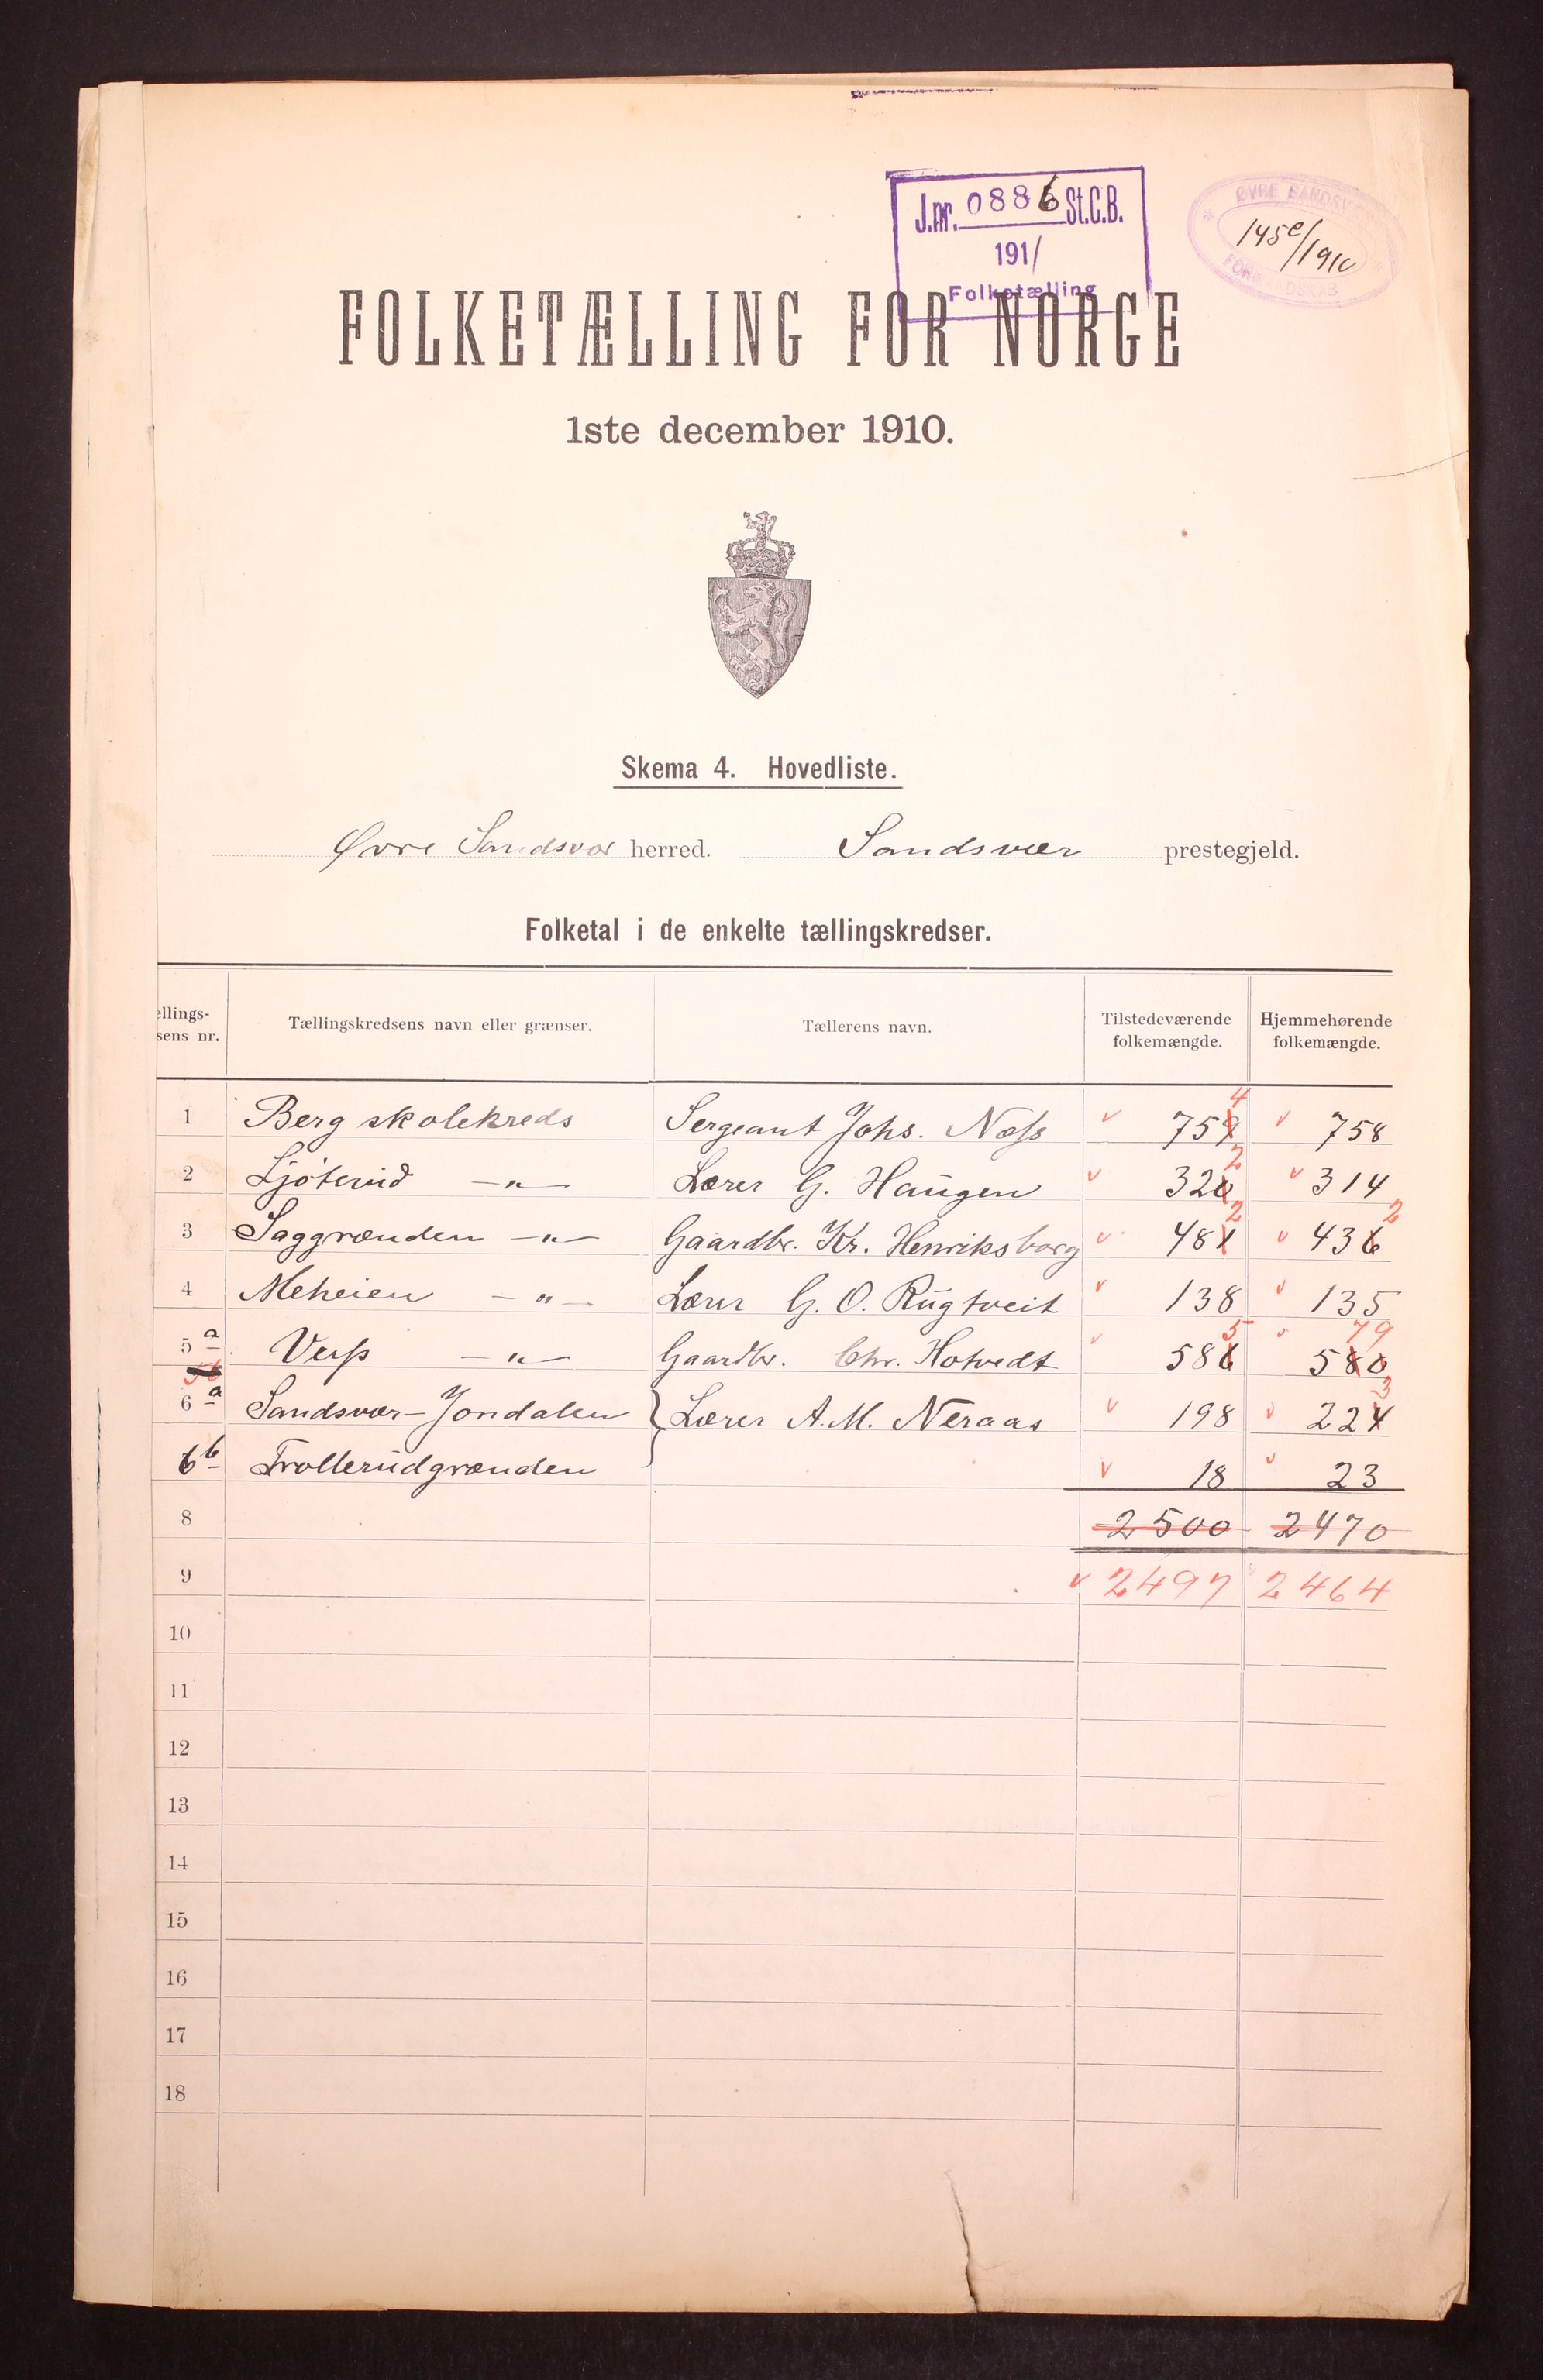 J.nr. 0886 St.C.B.
191/
Folketælling
ØVRE SANDSV
145e/1910
FORMANDSKAB
FOLKETÆLLING FOR NORGE
1ste december 1910.
Skema 4. Hovedliste.
Øvre Sandsvær herred. Sandsvær prestegjeld.
Folketal i de enkelte tællingskredser.
ellings-
sens nr. Tællingskredsens navn eller grænser. Tællerens navn. Tilstedeværende folkemængde. Hjemmehørende folkemængde.
1 Berg skolekreds Sergeant Johs. Næss v 759 4 v 758
2 Ljøterud -„- Lærer G. Haugen v 320 2 v 314
3 Saggrænden -„- Gaardbr. Kr. Henriksborg v 481 2 v 436 2
4 Meheien -„- Lærer G. O. Rugtveit v 138 v 135
5 a Vess -„- Gaardbr. Chr. Hotvedt v 586 5 v 580 79
6 a Sandsvær-Jondalen } Lærer A. M. Neraas v 198 v 224 3
6 b Trollerudgrænden v 18 v 23
8 2500 2470
9 v 2497 v 2464
10
11
12
13
14
15
16
17
18